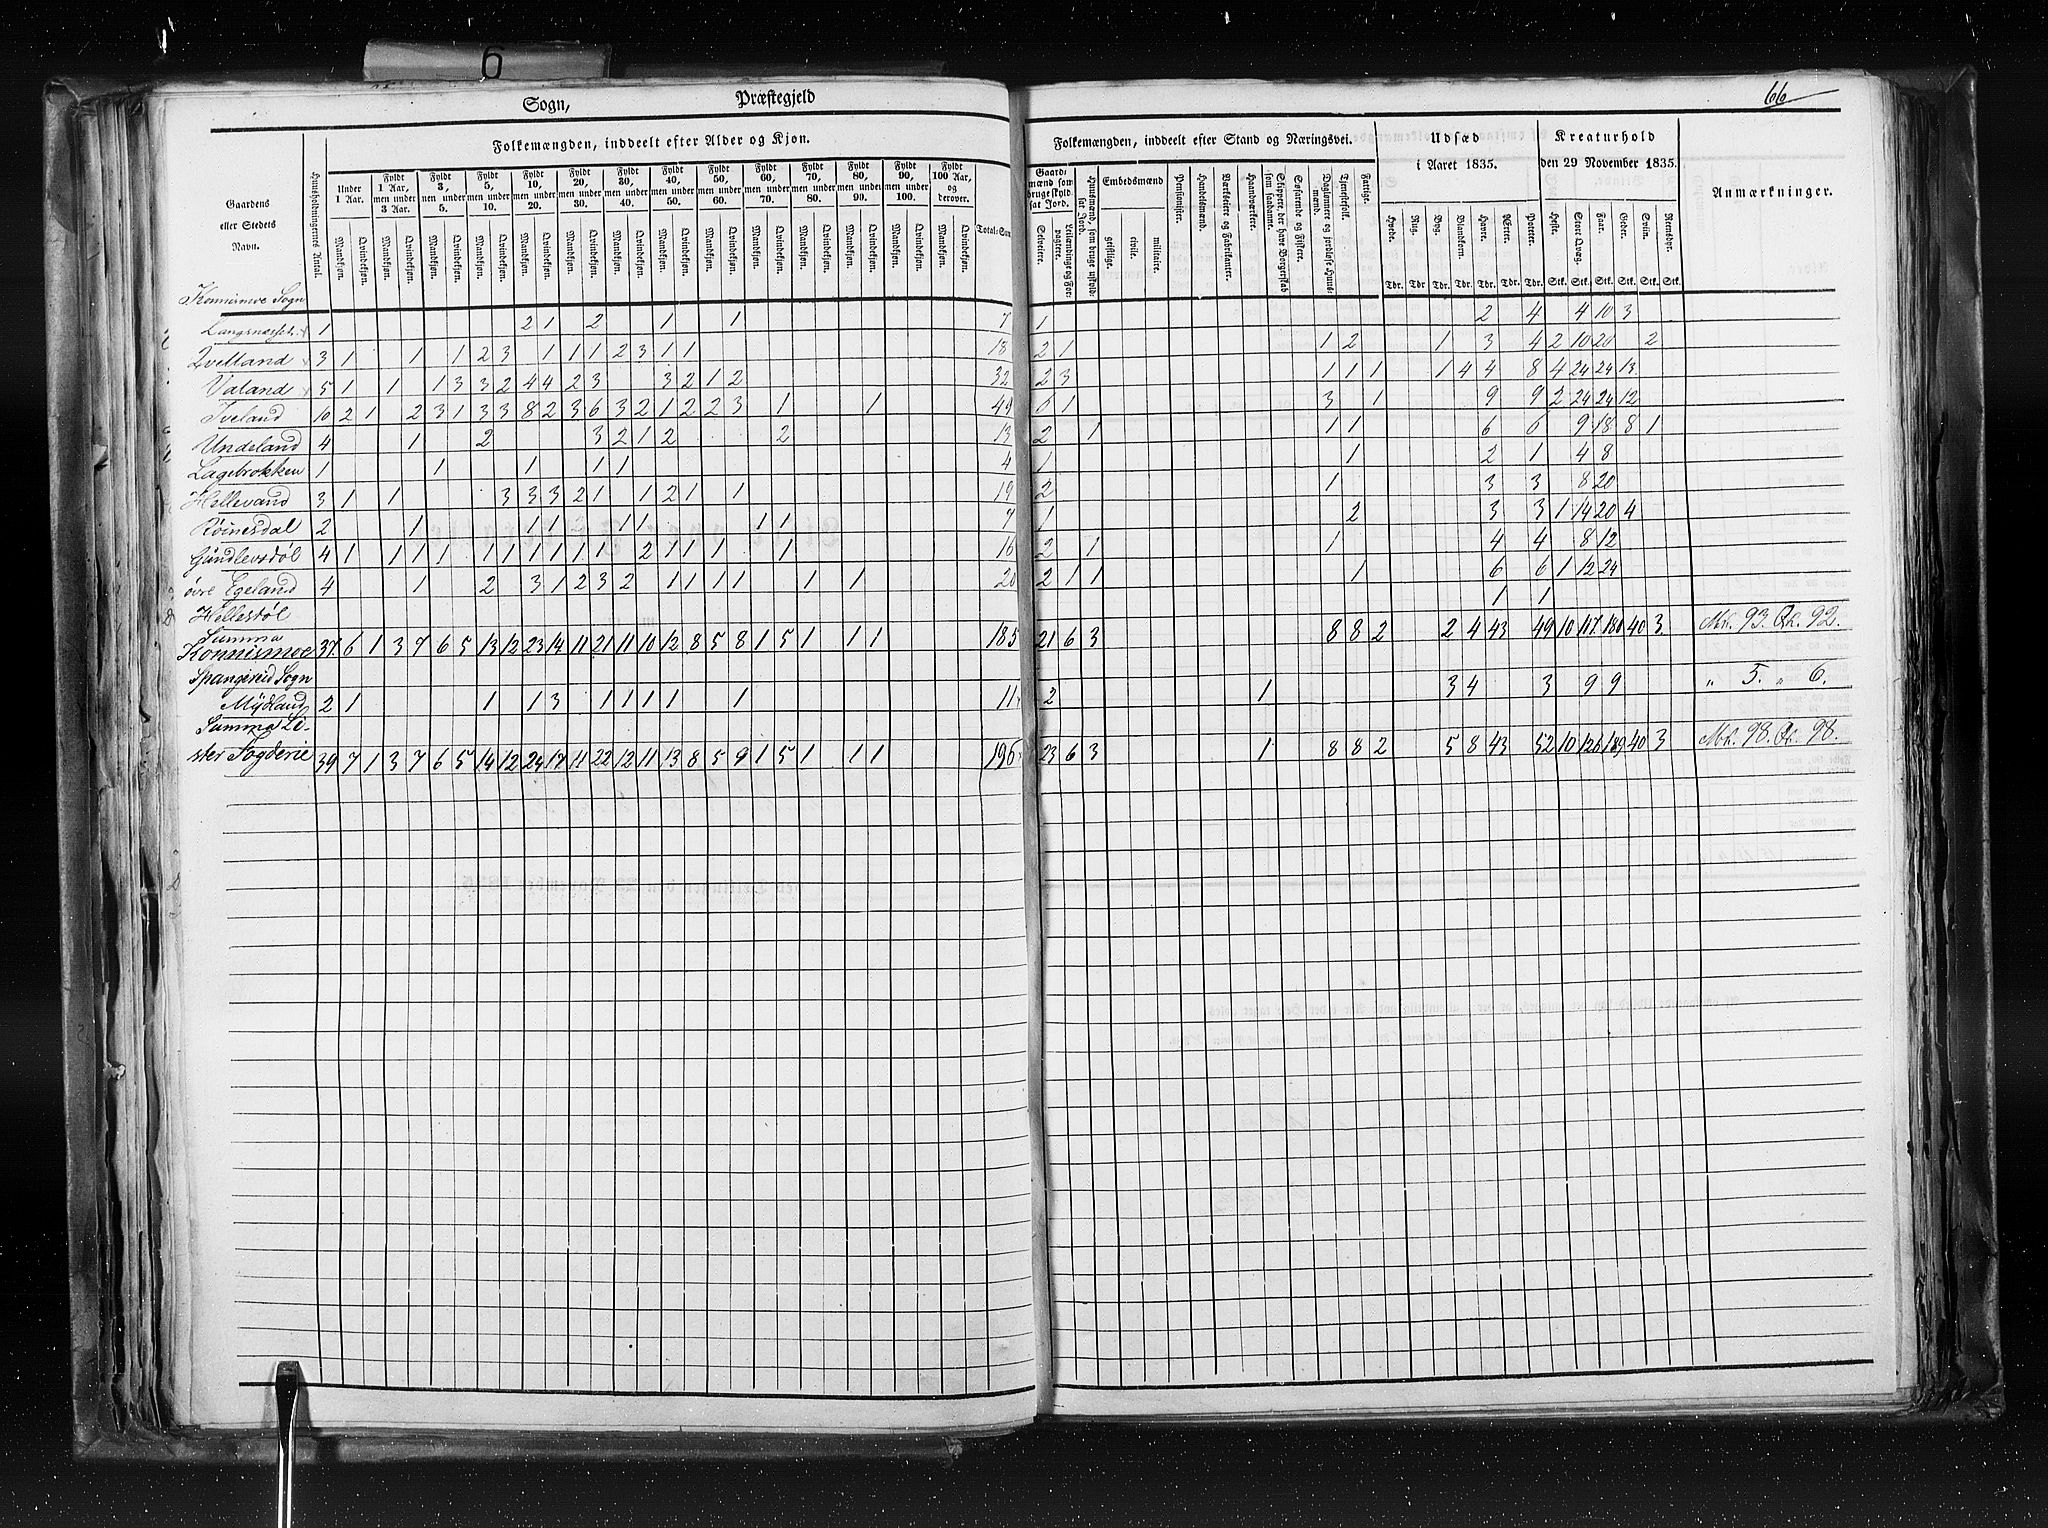 6
Sogn, Præstegjeld
66
Gaardens eller Stedets Navn.
Huusholdningernes Antal.
Folkemængden, inddeelt efter Alder og Kjøn.
Under 1 Aar.
Fyldt 1 Aar, men under 3 Aar.
Fyldt 3, men under 5.
Fyldt 5, men under 10.
Fyldt 10, men under 20.
Fyldt 20, men under 30.
Fyldt 30, men under 40.
Fyldt 40, men under 50.
Fyldt 50, men under 60.
Fyldt 60, men under 70.
Fyldt 70, men under 80.
Fyldt 80, men under 90.
Fyldt 90, men under 100.
Fyldt 100 Aar, og derover.
Mandkjøn. Qvindekjøn.
Total-Sum
Folkemængden, inddeelt efter Stand og Næringsvei.
Gaardmænd som bruge skyldsat Jord.
Selveiere.
Leilændinge og Forpagtere.
Huusmænd, som bruge skyldsat Jord.
Embedsmænd
geistlige. civile. militaire.
Pensionister.
Handelsmænd.
Værkseiere og Fabrikanter.
Haandværkere.
Skippere der have Borgerskab som saadanne.
Søfarende og Fiskere.
Daglønnere og jordløse Huusmænd.
Tjenestefolk.
Fattige.
Udsæd i Aaret 1835.
Hvede. Rug. Byg. Blandkorn. Havre. Erter. Poteter.
Tdr. Tdr. Tdr. Tdr. Tdr. Tdr. Tdr.
Kreaturhold den 29 November 1835.
Heste. Stort Qvæg. Faar. Geder. Sviin. Rensdyr.
Stk. Stk. Stk. Stk. Stk. Stk.
Anmærkninger.
Konnismoe Sogn
Langsnæsset 1 2 1 2 1 1 7 1 2 4 4 10 3
Qvelland 3 1 1 1 2 3 1 1 1 1 2 3 1 1 18 2 1 1 2 1 3 4 2 10 20 2
Valand 5 1 1 1 3 3 2 4 4 2 3 3 2 1 2 32 2 3 1 1 1 1 4 4 8 4 24 24 13
Iveland 10 2 1 2 3 1 3 3 8 2 3 6 3 2 1 2 2 3 1 1 49 6 1 3 1 9 9 2 24 24 12
Undeland 4 1 2 3 2 1 2 2 13 2 1 1 1 6 6 9 18 8 1
Lagebrokken 1 1 1 1 1 4 1 1 2 1 4 8
Hellevand 3 1 1 3 3 3 2 1 1 2 1 1 19 2 1 3 3 8 20
Røinesdal 2 1 1 1 2 1 1 1 1 7 1 2 3 3 1 14 20 4
Gundlevsdøl 4 1 1 1 1 1 1 1 1 1 1 2 1 1 1 1 16 2 1 1 4 4 8 12
øvre Egeland 4 1 2 3 1 2 3 2 1 1 1 1 1 1 20 2 1 1 1 6 6 1 12 24
Hellesdøl 1 1
Summa
Konnismoe 37 6 1 3 7 6 5 13 12 23 14 11 21 11 10 12 8 5 8 1 5 1 1 1 185 21 6 3 8 8 2 2 4 43 49 10 117 180 40 3 Mk. 93. Qk. 92.
Spangereid Sogn
Mydland 2 1 1 1 3 1 1 1 1 1 11 2 1 3 4 3 9 9 „ 5. „ 6.
Summa Li-
ster Fogderie 39 7 1 3 7 6 5 14 12 24 17 11 22 12 11 13 8 5 9 1 5 1 1 1 196 23 6 3 1 8 8 2 5 8 43 52 10 126 189 40 3 Mk. 98. Qk. 98.